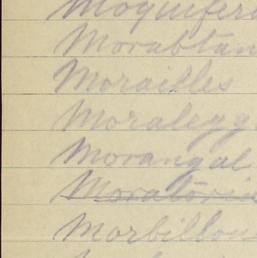 Moquifer
Morabtan
Morailles
Moralegg
Morangal
Moratoria
Morbillou